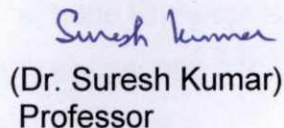 Suresh Kumar
(Dr. Suresh Kumar)
Professor